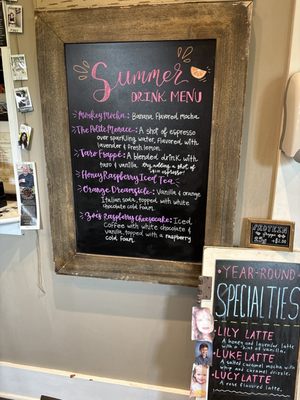 Summer
DRINK MENU
Monkey Mocha: Banana flavored mocha
The Petite Menace: A shot of espresso
over sparkling water, flavored with
lavender & fresh lemon.
Taro Frappé: A blended drink with
taro and vanilla. Try adding a shot of
Honey Raspberry Iced Tea
Orange Dreamsicle: Vanilla & orange
Italian soda, topped with white
chocolate cold foam.
Raspberry Cheesecake: Iced
Coffee with white chocolate &
vanilla, topped with a raspberry
cold foam.
PROTEIN
YEAR-ROUND
SPECIALTIES
LILY LATTE
A honey and lavender latte
with a hint of vanilla.
LUKE LATTE
A salted caramel mocha with
whip and caramel drizzle.
LUCY LATTE
A rose flavored latte.